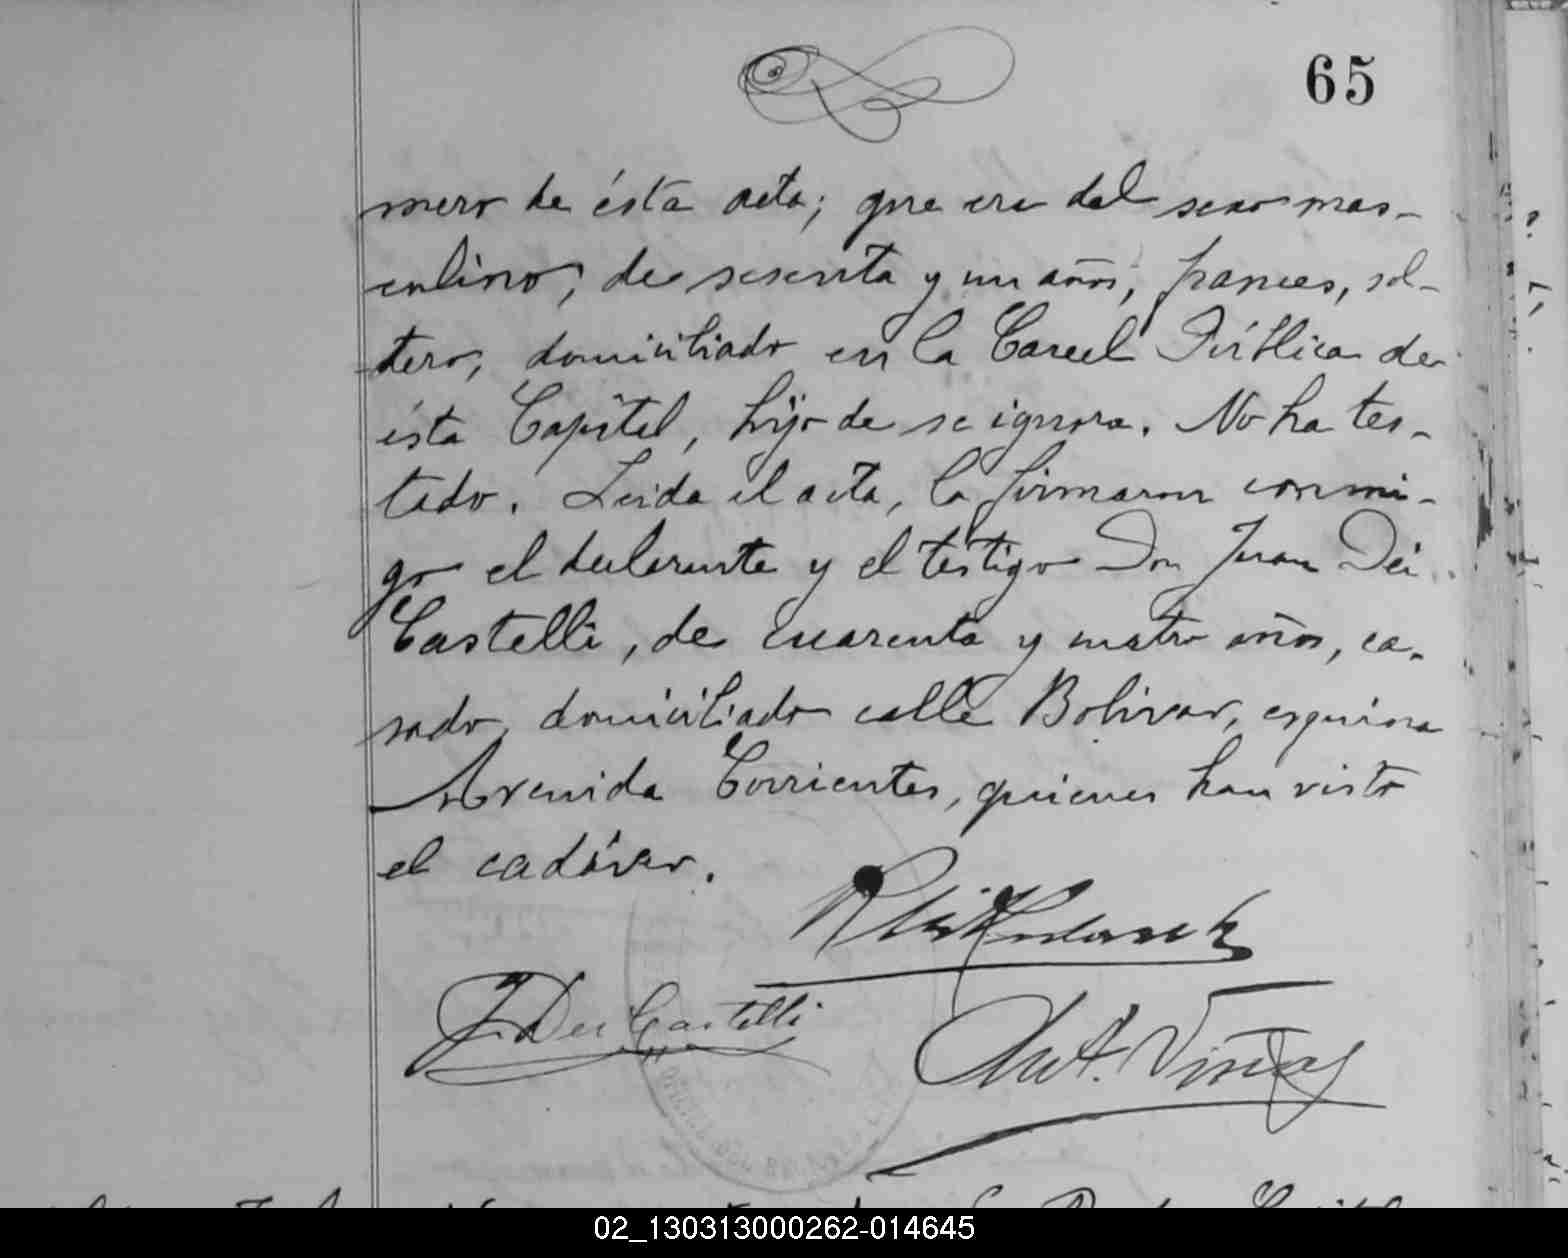 65
mero de ésta acta; que era del sexo mas-
culino, de sesenta y un años, frances, sol-
tero, domiciliado en la Carcel Pública de
ésta Capital, hijo de se ignora. No ha tes-
tado. Leida el acta, la firmaron conmi-
go el declarante y el testigo Don Juan Dei
Castelli, de cuarenta y cuatro años, ca-
sado, domiciliado calle Bolivar, esquina
Avenida Corrientes, quienes han visto
el cadáver.
J. Dei Castelli
Ant. Viñas
02_130313000262-014645